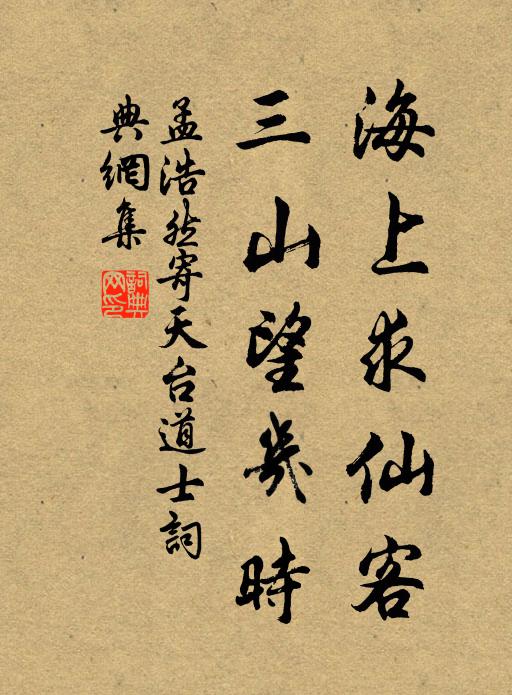 海上求仙客
三山望幾時
孟浩然寄天台道士詞
典網集
詞典網印